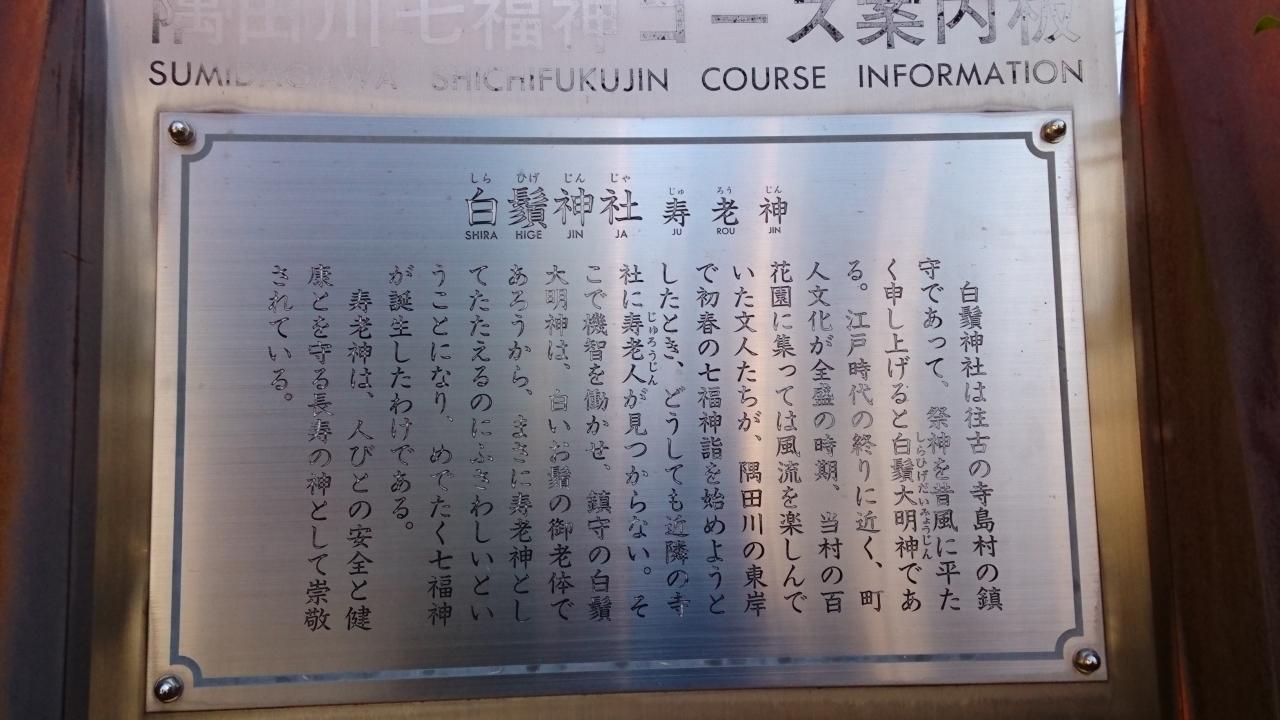 隅田川七福神コース案内板
SUMIDAGAWA SHICHIFUKUJIN COURSE INFORMATION
しら ひげ じん じゃ じゅ ろう じん
白鬚神社 寿老神
SHIRA HIGE JIN JA JU ROU JIN
白鬚神社は往古の寺島村の鎮
守であって、祭神を昔風に平た
しらひげだいみょうじん
く申し上げると白鬚大明神であ
る。江戸時代の終りに近く、町
人文化が全盛の時期、当村の百
花園に集っては風流を楽しんで
いた文人たちが、隅田川の東岸
で初春の七福神詣を始めようと
したとき、どうしても近隣の寺
じゅろうじん
社に寿老人が見つからない。そ
こで機智を働かせ、鎮守の白鬚
大明神は、白いお鬚の御老体で
あろうから、まさに寿老神とし
てたたえるのにふさわしいとい
うことになり、めでたく七福神
が誕生したわけである。
寿老神は、人びとの安全と健
康とを守る長寿の神として崇敬
されている。